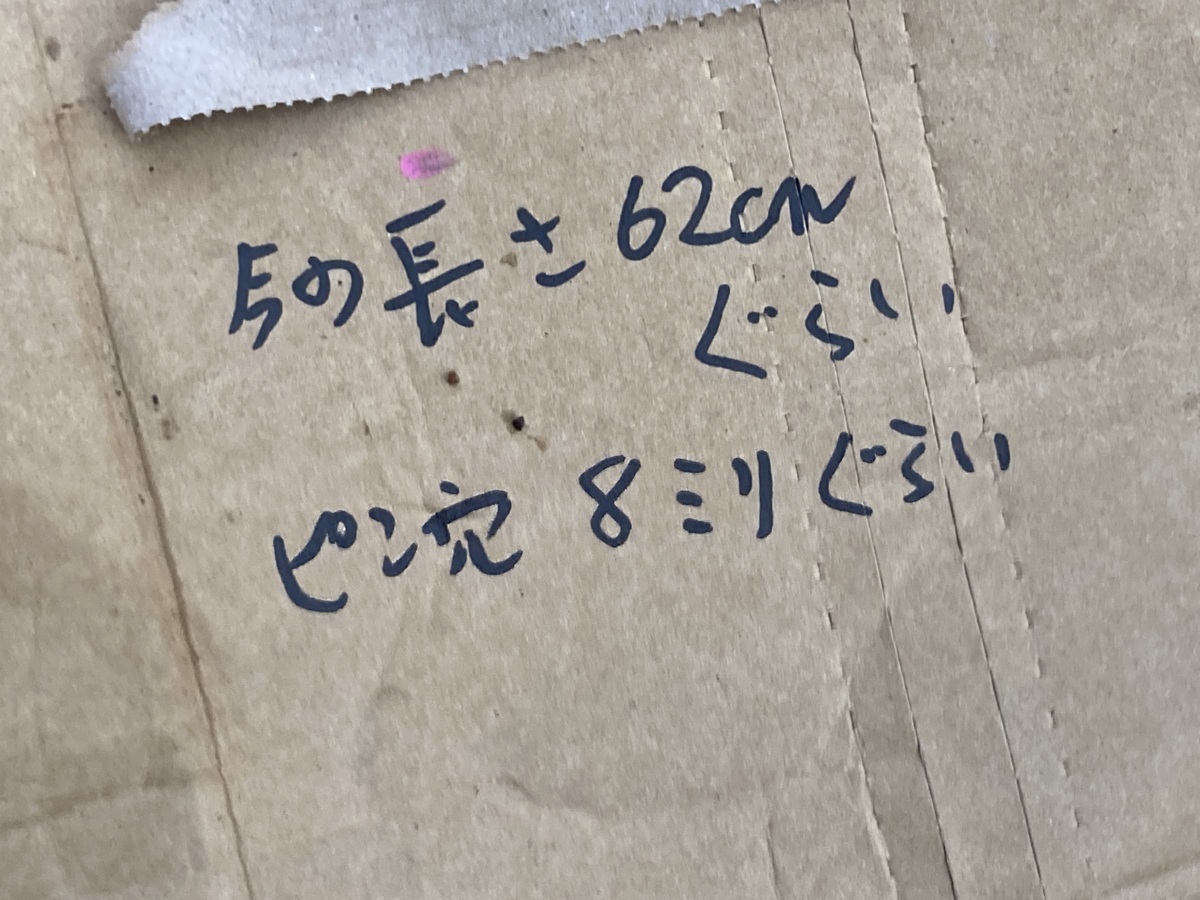 の長さ62cm
ぐらい
ピン穴 8ミリぐらい